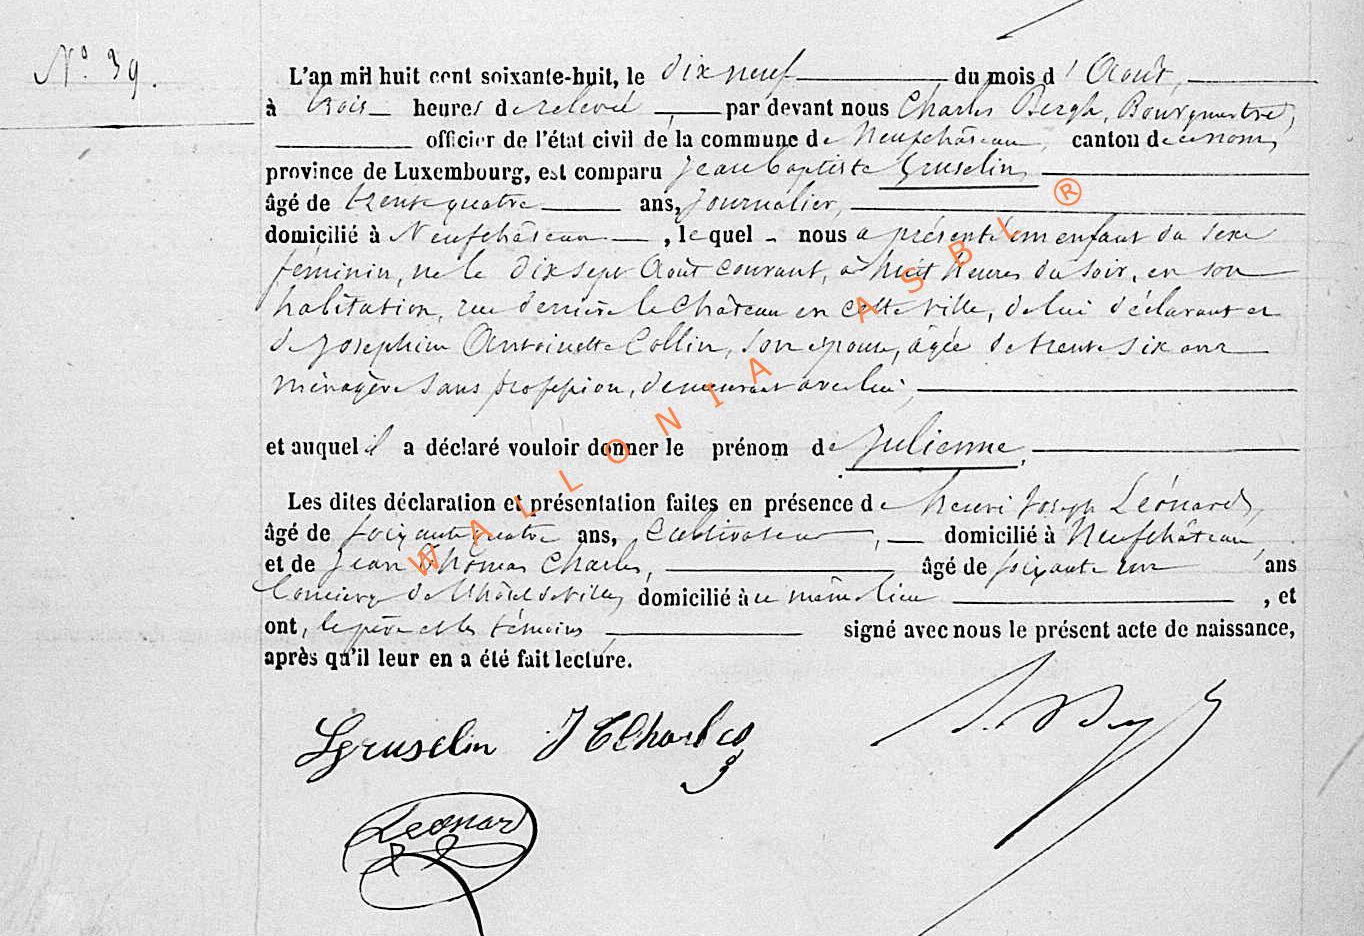 N° 39.
L'an mil huit cent soixante-huit, le dix neuf du mois d'Août,
à trois heures de relevée, par devant nous Charles Bergh, Bourgmestre,
officier de l'état civil de la commune de Neufchâteau, canton de ce nom,
province de Luxembourg, est comparu Jean Baptiste Gruselin,
âgé de trente quatre ans, Journalier,
domicilié à Neufchâteau, lequel nous a présenté un enfant du sexe
féminin, né le dix sept Août courant, à huit heures du soir, en son
habitation, rue derrière le Château en cette ville, de lui déclarant et
de Joséphine Antoinette Collin, son épouse, âgée de trente six ans
ménagère sans profession, demeurant avec lui,
et auquel il a déclaré vouloir donner le prénom de Julienne,
Les dites déclaration et présentation faites en présence de Henri Joseph Léonard,
âgé de soixante quatre ans, Cultivateur, domicilié à Neufchâteau,
et de Jean Thomas Charles, âgé de soixante un ans
Concierge de l'hôtel de ville, domicilié à ce même lieu, et
ont, le père et les témoins signé avec nous le présent acte de naissance,
après qu'il leur en a été fait lecture.
Gruselin JTCharles
Léonard
WALLONIA ASBL ®